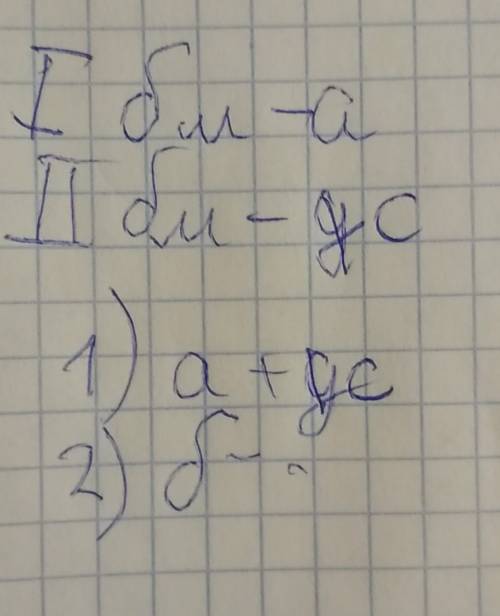 I бм - а
II бм - дс
1) а + дс
2) б -